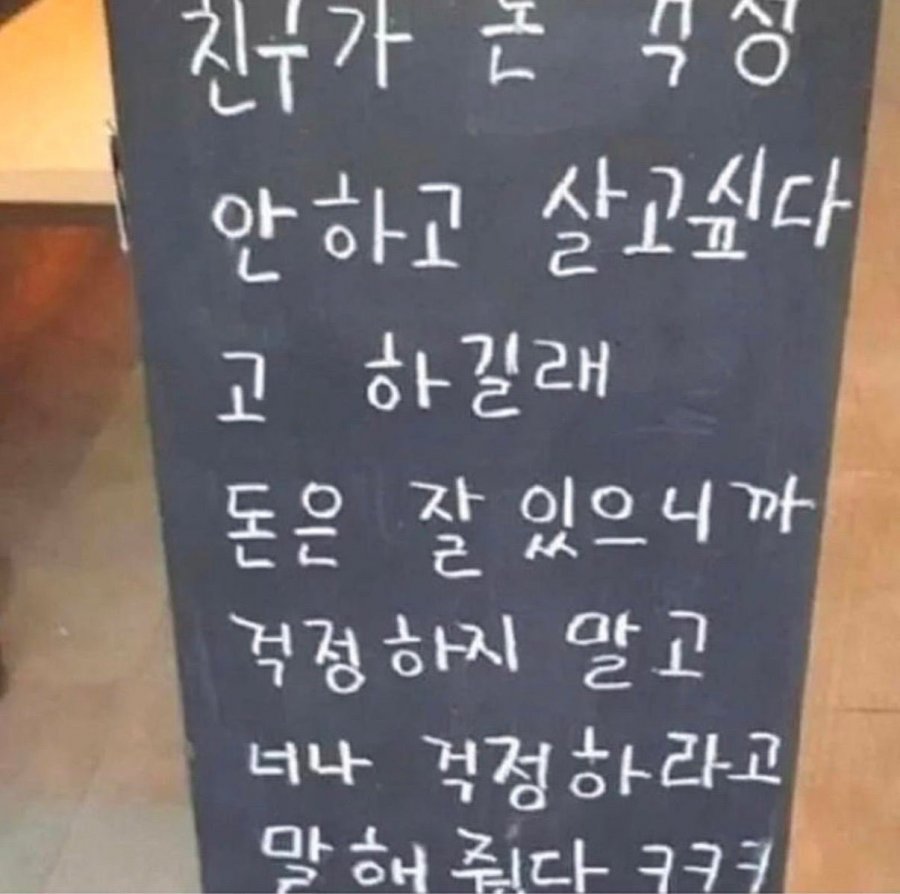 친구가 돈 걱정
안하고 살고싶다
고 하길래
돈은 잘 있으니까
걱정하지 말고
너나 걱정하라고
말해줬다 ㅋㅋㅋ